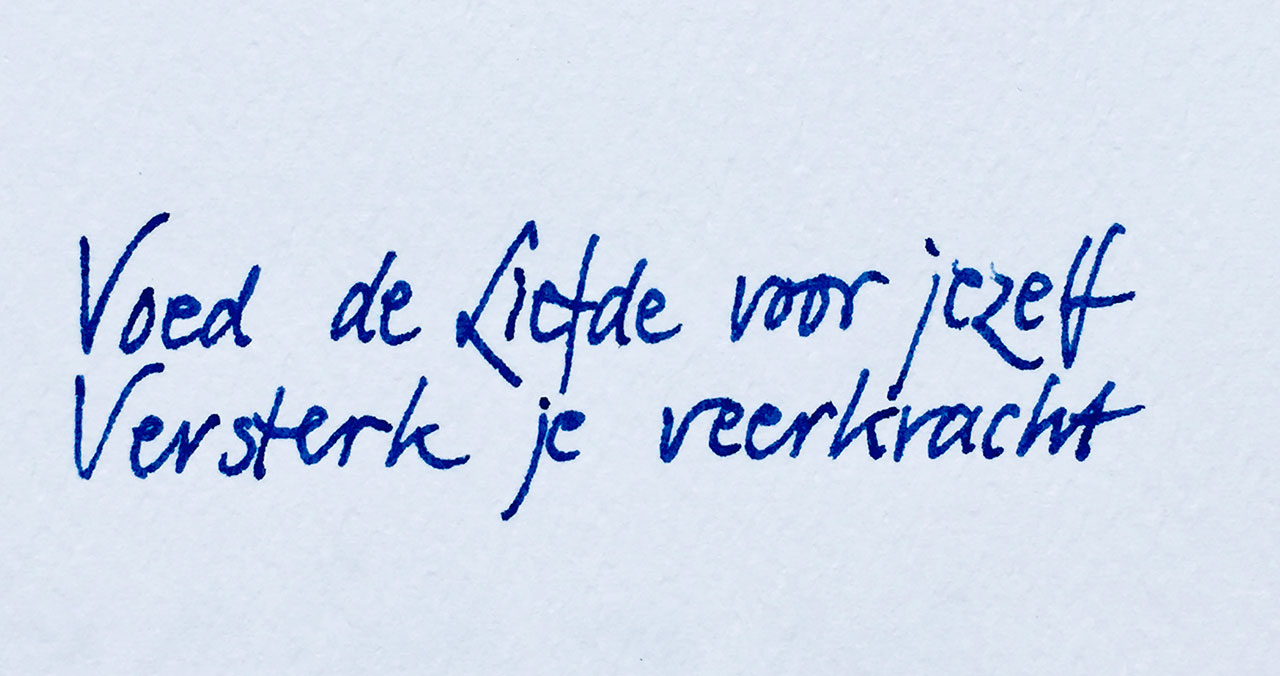 Voed de Liefde voor jezelf
Versterk je veerkracht